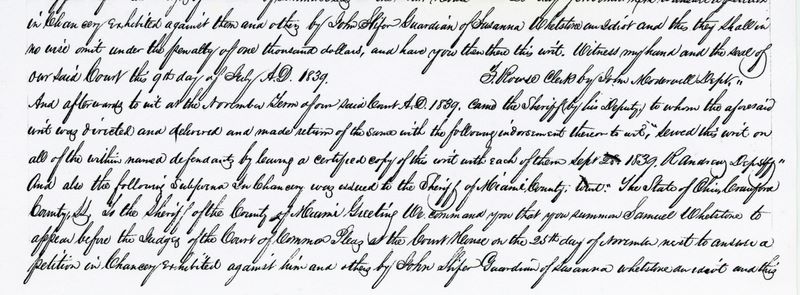 in Chancery exhibited against them and others by John Slifer Guardian of Susanna Whetstone an Idiot and this they shall in
no wise omit under the penalty of one thousand dollars, and have you then there this writ. Witness my hand and the seal of
our said Court this 9th day of July A.D. 1839. Z Rowse Clerk by Jno. Moderwell Depty"
And afterwards to wit at the November Term of our said Court A.D. 1839. came the Sheriff (by his Deputy) to whom the aforesaid
writ was directed and delivered and made return of the same with the following indorsement thereon to wit, "served this writ on
all of the within named defendants by leaving a certified copy of this writ with each of them Sept 25 1839. R Andrews Dep. Shff"
And also the following Subpoena In Chancery was issued to the Sheriff of Miami County. towit: "The State of Ohio, Crawford
County, Ss. To the Sheriff of the County of Miami Greeting We command you that you summon Samuel Whetstone to
appear before the Judges of the Court of Common Pleas at the Court House on the 25th day of November next to answer a
petition in Chancery exhibited against him and others by John Slifer Guardian of Susanna Whetstone an idiot and this